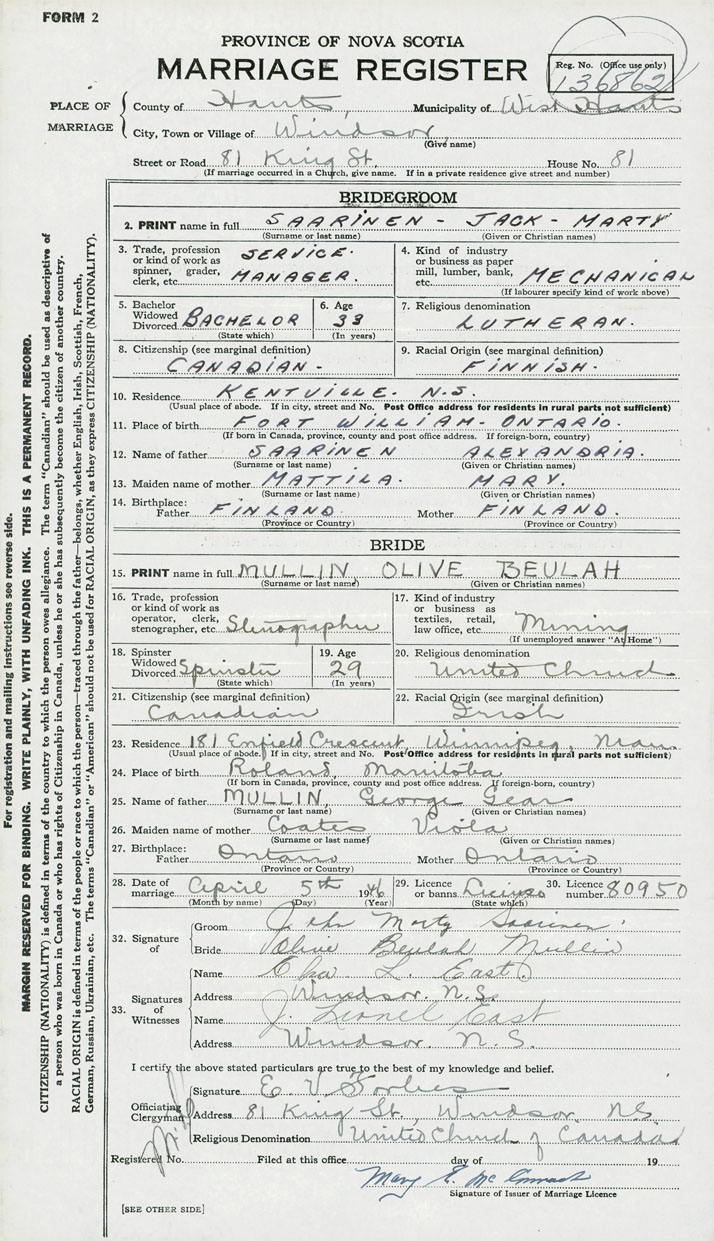 FORM 2
PROVINCE OF NOVA SCOTIA
MARRIAGE REGISTER
Reg. No. (Office use only)
136862
PLACE OF MARRIAGE
County of Hants, Municipality of West Hants
City, Town or Village of Windsor,
(Give name)
Street or Road 81 King St. House No. 81
(If marriage occurred in a Church, give name. If in a private residence give street and number)
BRIDEGROOM
2. PRINT name in full SAARINEN - JACK - MARTY
(Surname or last name) (Given or Christian names)
3. Trade, profession or kind of work as spinner, grader, clerk, etc. SERVICE. MANAGER.
4. Kind of industry or business as paper mill, lumber, bank, etc. MECHANICAL
(If labourer specify kind of work above)
5. Bachelor Widowed Divorced BACHELOR
(State which)
6. Age 33
(In years)
7. Religious denomination LUTHERAN.
8. Citizenship (see marginal definition) CANADIAN.
9. Racial Origin (see marginal definition) FINNISH.
10. Residence KENTVILLE. N.S.
(Usual place of abode. If in city, street and No. Post Office address for residents in rural parts not sufficient)
11. Place of birth FORT WILLIAM - ONTARIO.
(If born in Canada, province, county and post office address. If foreign-born, country)
12. Name of father SAARINEN ALEXANDRIA.
(Surname or last name) (Given or Christian names)
13. Maiden name of mother MATTILA. MARY.
(Surname or last name) (Given or Christian names)
14. Birthplace: Father FINLAND. Mother FINLAND.
(Province or Country) (Province or Country)
BRIDE
15. PRINT name in full MULLIN OLIVE BEULAH
(Surname or last name) (Given or Christian names)
16. Trade, profession or kind of work as operator, clerk, stenographer, etc Stenographer
17. Kind of industry or business as textiles, retail, law office, etc. Mining
(If unemployed answer "At Home")
18. Spinster Widowed Divorced Spinster
(State which)
19. Age 29
(In years)
20. Religious denomination United Church
21. Citizenship (see marginal definition) Canadian
22. Racial Origin (see marginal definition) Irish
23. Residence 181 Enfield Crescent, Winnipeg, Man.
(Usual place of abode. If in city, street and No. Post Office address for residents in rural parts not sufficient)
24. Place of birth Roland, Manitoba
(If born in Canada, province, county and post office address. If foreign-born, country)
25. Name of father MULLIN, George Gear
(Surname or last name) (Given or Christian names)
26. Maiden name of mother Coates Viola
(Surname or last name) (Given or Christian names)
27. Birthplace: Father Ontario Mother Ontario
(Province or Country) (Province or Country)
28. Date of marriage April 5th 1946
(Month by name) (Day) (Year)
29. Licence or banns License
(State which)
30. Licence number 80950
32. Signature of
Groom John Marty Saarinen
Bride Olive Beulah Mullin
33. Signatures of Witnesses
Name L. East
Address Windsor. N.S.
Name J. Lionel East
Address Windsor. N.S.
I certify the above stated particulars are true to the best of my knowledge and belief.
Officiating Clergyman
Signature E. V. Forbes
Address 81 King St., Windsor, NS
Religious Denomination United Church of Canada
Registered No. Filed at this office day of 19
Mary E.
Signature of Issuer of Marriage Licence
[SEE OTHER SIDE]
For registration and mailing instructions see reverse side.
MARGIN RESERVED FOR BINDING. WRITE PLAINLY, WITH UNFADING INK. THIS IS A PERMANENT RECORD.
CITIZENSHIP (NATIONALITY) is defined in terms of the country to which the person owes allegiance. The term "Canadian" should be used as descriptive of
a person who was born in Canada or who has rights of Citizenship in Canada, unless he or she has subsequently become the citizen of another country.
RACIAL ORIGIN is defined in terms of the people or race to which the person—traced through the father—belongs, whether English, Irish, Scottish, French,
German, Russian, Ukrainian, etc. The terms "Canadian" or "American" should not be used for RACIAL ORIGIN, as they express CITIZENSHIP (NATIONALITY).